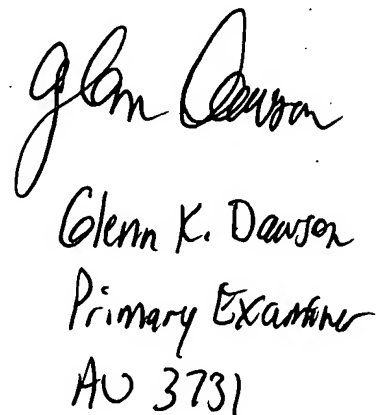 Glenn Dawson
Glenn K. Dawson
Primary Examiner
AU 3731